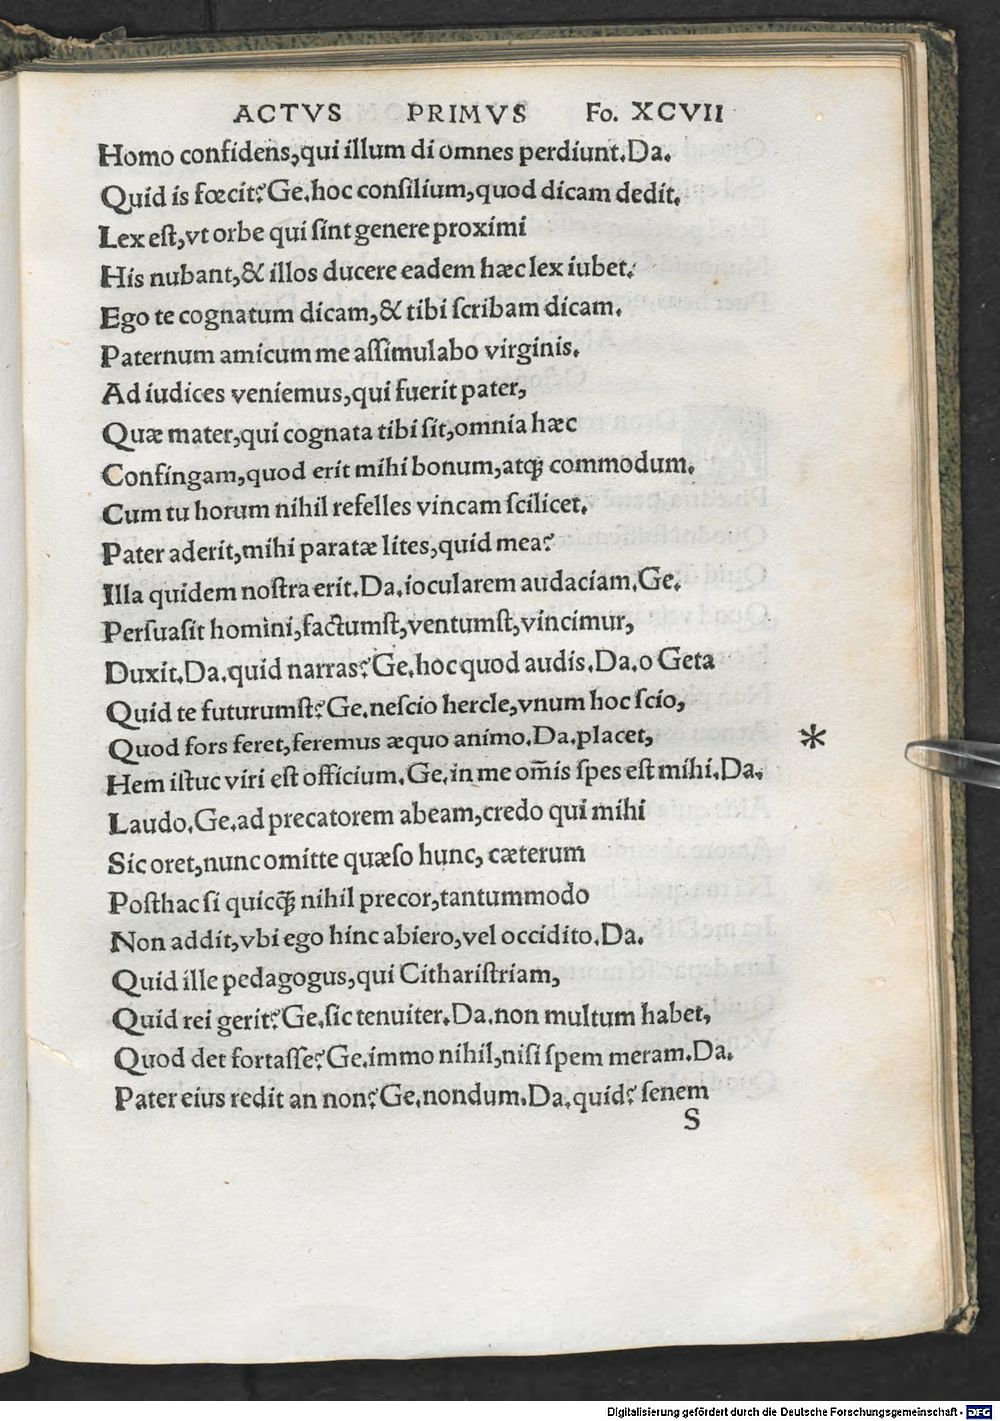 ACTVS PRIMVS Fo. XCVII
Homo confidens, qui illum di omnes perdiunt. Da.
Quid is fœcit? Ge. hoc conſilium, quod dicam dedit.
Lex eſt, vt orbe qui ſint genere proximi
His nubant, & illos ducere eadem hæc lex iubet.
Ego te cognatum dicam, & tibi ſcribam dicam.
Paternum amicum me aſſimulabo virginis.
Ad iudices veniemus, qui fuerit pater,
Quæ mater, qui cognata tibi ſit, omnia hæc
Confingam, quod erit mihi bonum, atqꝫ commodum.
Cum tu horum nihil refelles vincam ſcilicet.
Pater aderit, mihi paratæ lites, quid mea?
Illa quidem noſtra erit. Da. iocularem audaciam. Ge.
Perſuaſit homini, factumſt, ventumſt, vincimur,
Duxit. Da. quid narras? Ge. hoc quod audis. Da. o Geta
Quid te futurumſt? Ge. neſcio hercle, vnum hoc ſcio,
Quod fors feret, feremus æquo animo. Da. placet, *
Hem iſtuc viri eſt officium. Ge. in me om̄is ſpes eſt mihi. Da.
Laudo. Ge. ad precatorem abeam, credo qui mihi
Sic oret, nunc omitte quæſo hunc, cæterum
Poſthac ſi quicqꝫ̃ nihil precor, tantummodo
Non addit, vbi ego hinc abiero, vel occidito. Da.
Quid ille pedagogus, qui Cithariſtriam,
Quid rei gerit? Ge. ſic tenuiter. Da. non multum habet,
Quod det fortaſſe? Ge. immo nihil, niſi ſpem meram. Da.
Pater eius redit an non? Ge. nondum. Da. quid? ſenem
S
Digitalisierung gefördert durch die Deutsche Forschungsgemeinschaft - DFG